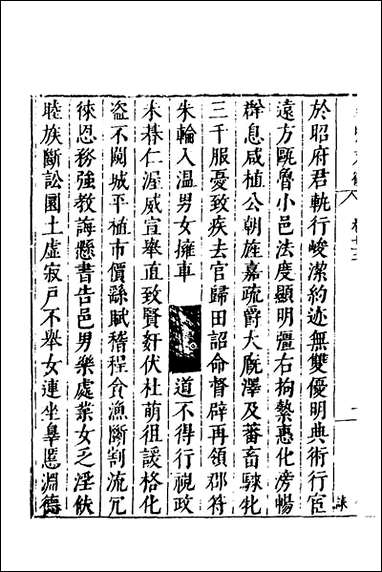 於昭府君執行峻潔約迹無雙優明典術行宦
遠方甌魯小邑法度顯明彊右拘縶惠化傍暢
群息咸植公朝旌嘉疏爵大厥澤及蕃畜騋牝
三千服憂致疾去官歸田詔命督辟再領郡符
朱輪入溫男女擁車道不得行視政
未朞仁渥威宣舉直致賢姧伏杜萌徂諼格化
盗不闚城平植市價繇賦稽程貪漁斷割流冗
徠恩務強教誨懸書告邑男樂處業女乏淫佅
睦族斷訟圄土虛寂戸不舉女連坐辠慝淵德